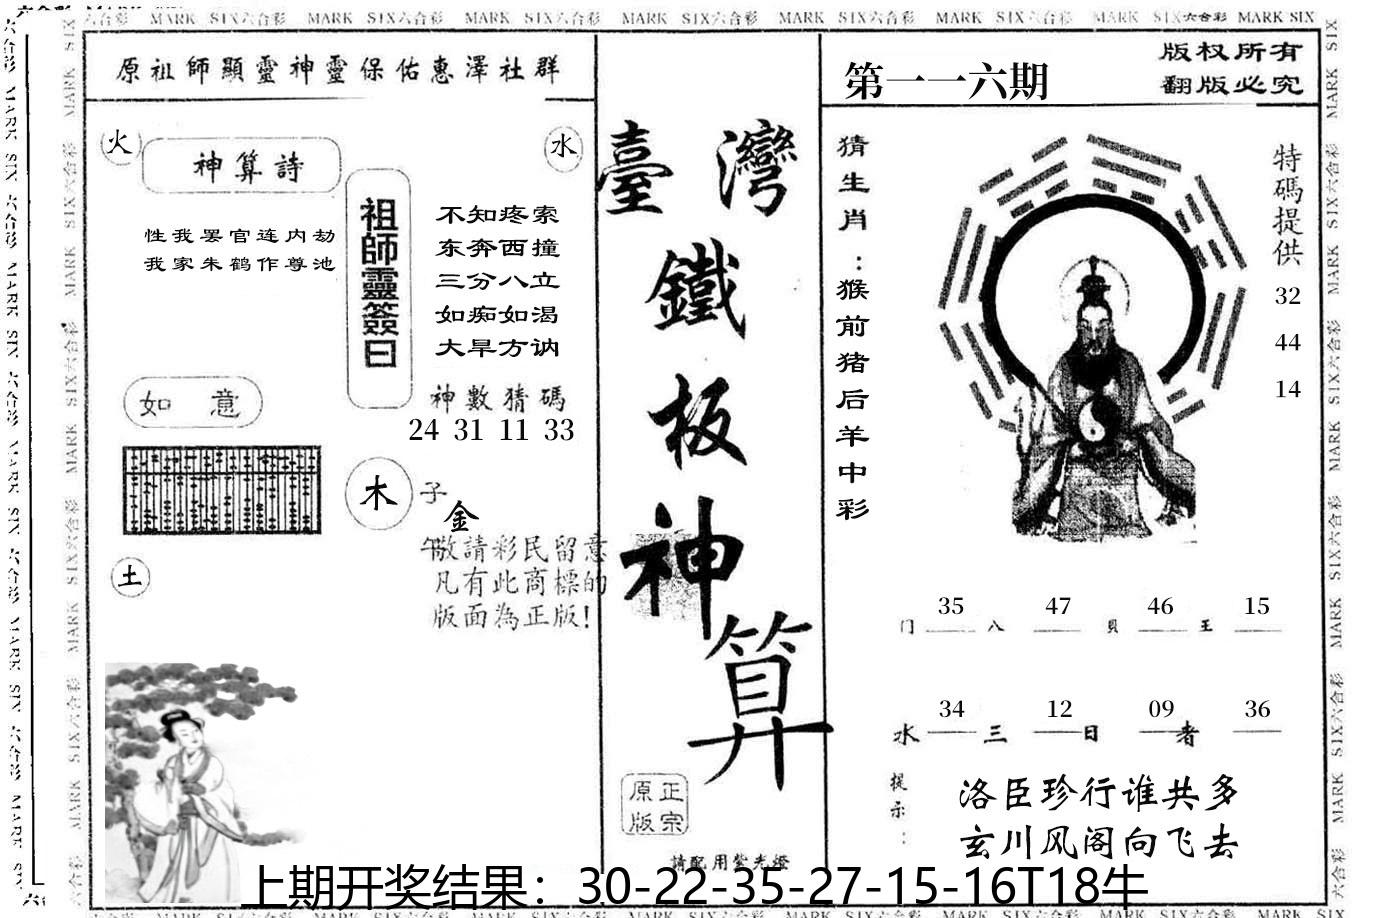 MARK SIX六合彩 MARK SIX六合彩 MARK SIX六合彩 MARK SIX六合彩 MARK SIX六合彩 MARK SIX六合彩 MARK SIX六合彩 MARK SIX
原祖師顯靈神靈保佑惠澤社群
火
神算詩
水
性我罢官连内劫
我家朱鹤作尊池
祖師靈簽曰
不知疼索
东奔西撞
三分八立
如痴如渴
大旱方讷
神數猜碼
24 31 11 33
如意
木
子
金
午
敬請彩民留意
凡有此商標的
版面為正版!
土
臺灣
鐵
板
神
算
正宗
原版
請配用紫光燈
第一一六期
版权所有
翻版必究
猜生肖:猴前猪后羊中彩
特碼提供
32
44
14
35 47 46 15
门 八 貝 王
34 12 09 36
水 三 日 者
提示:
洛臣珍行谁共多
玄川风阁向飞去
上期开奖结果：30-22-35-27-15-16T18牛